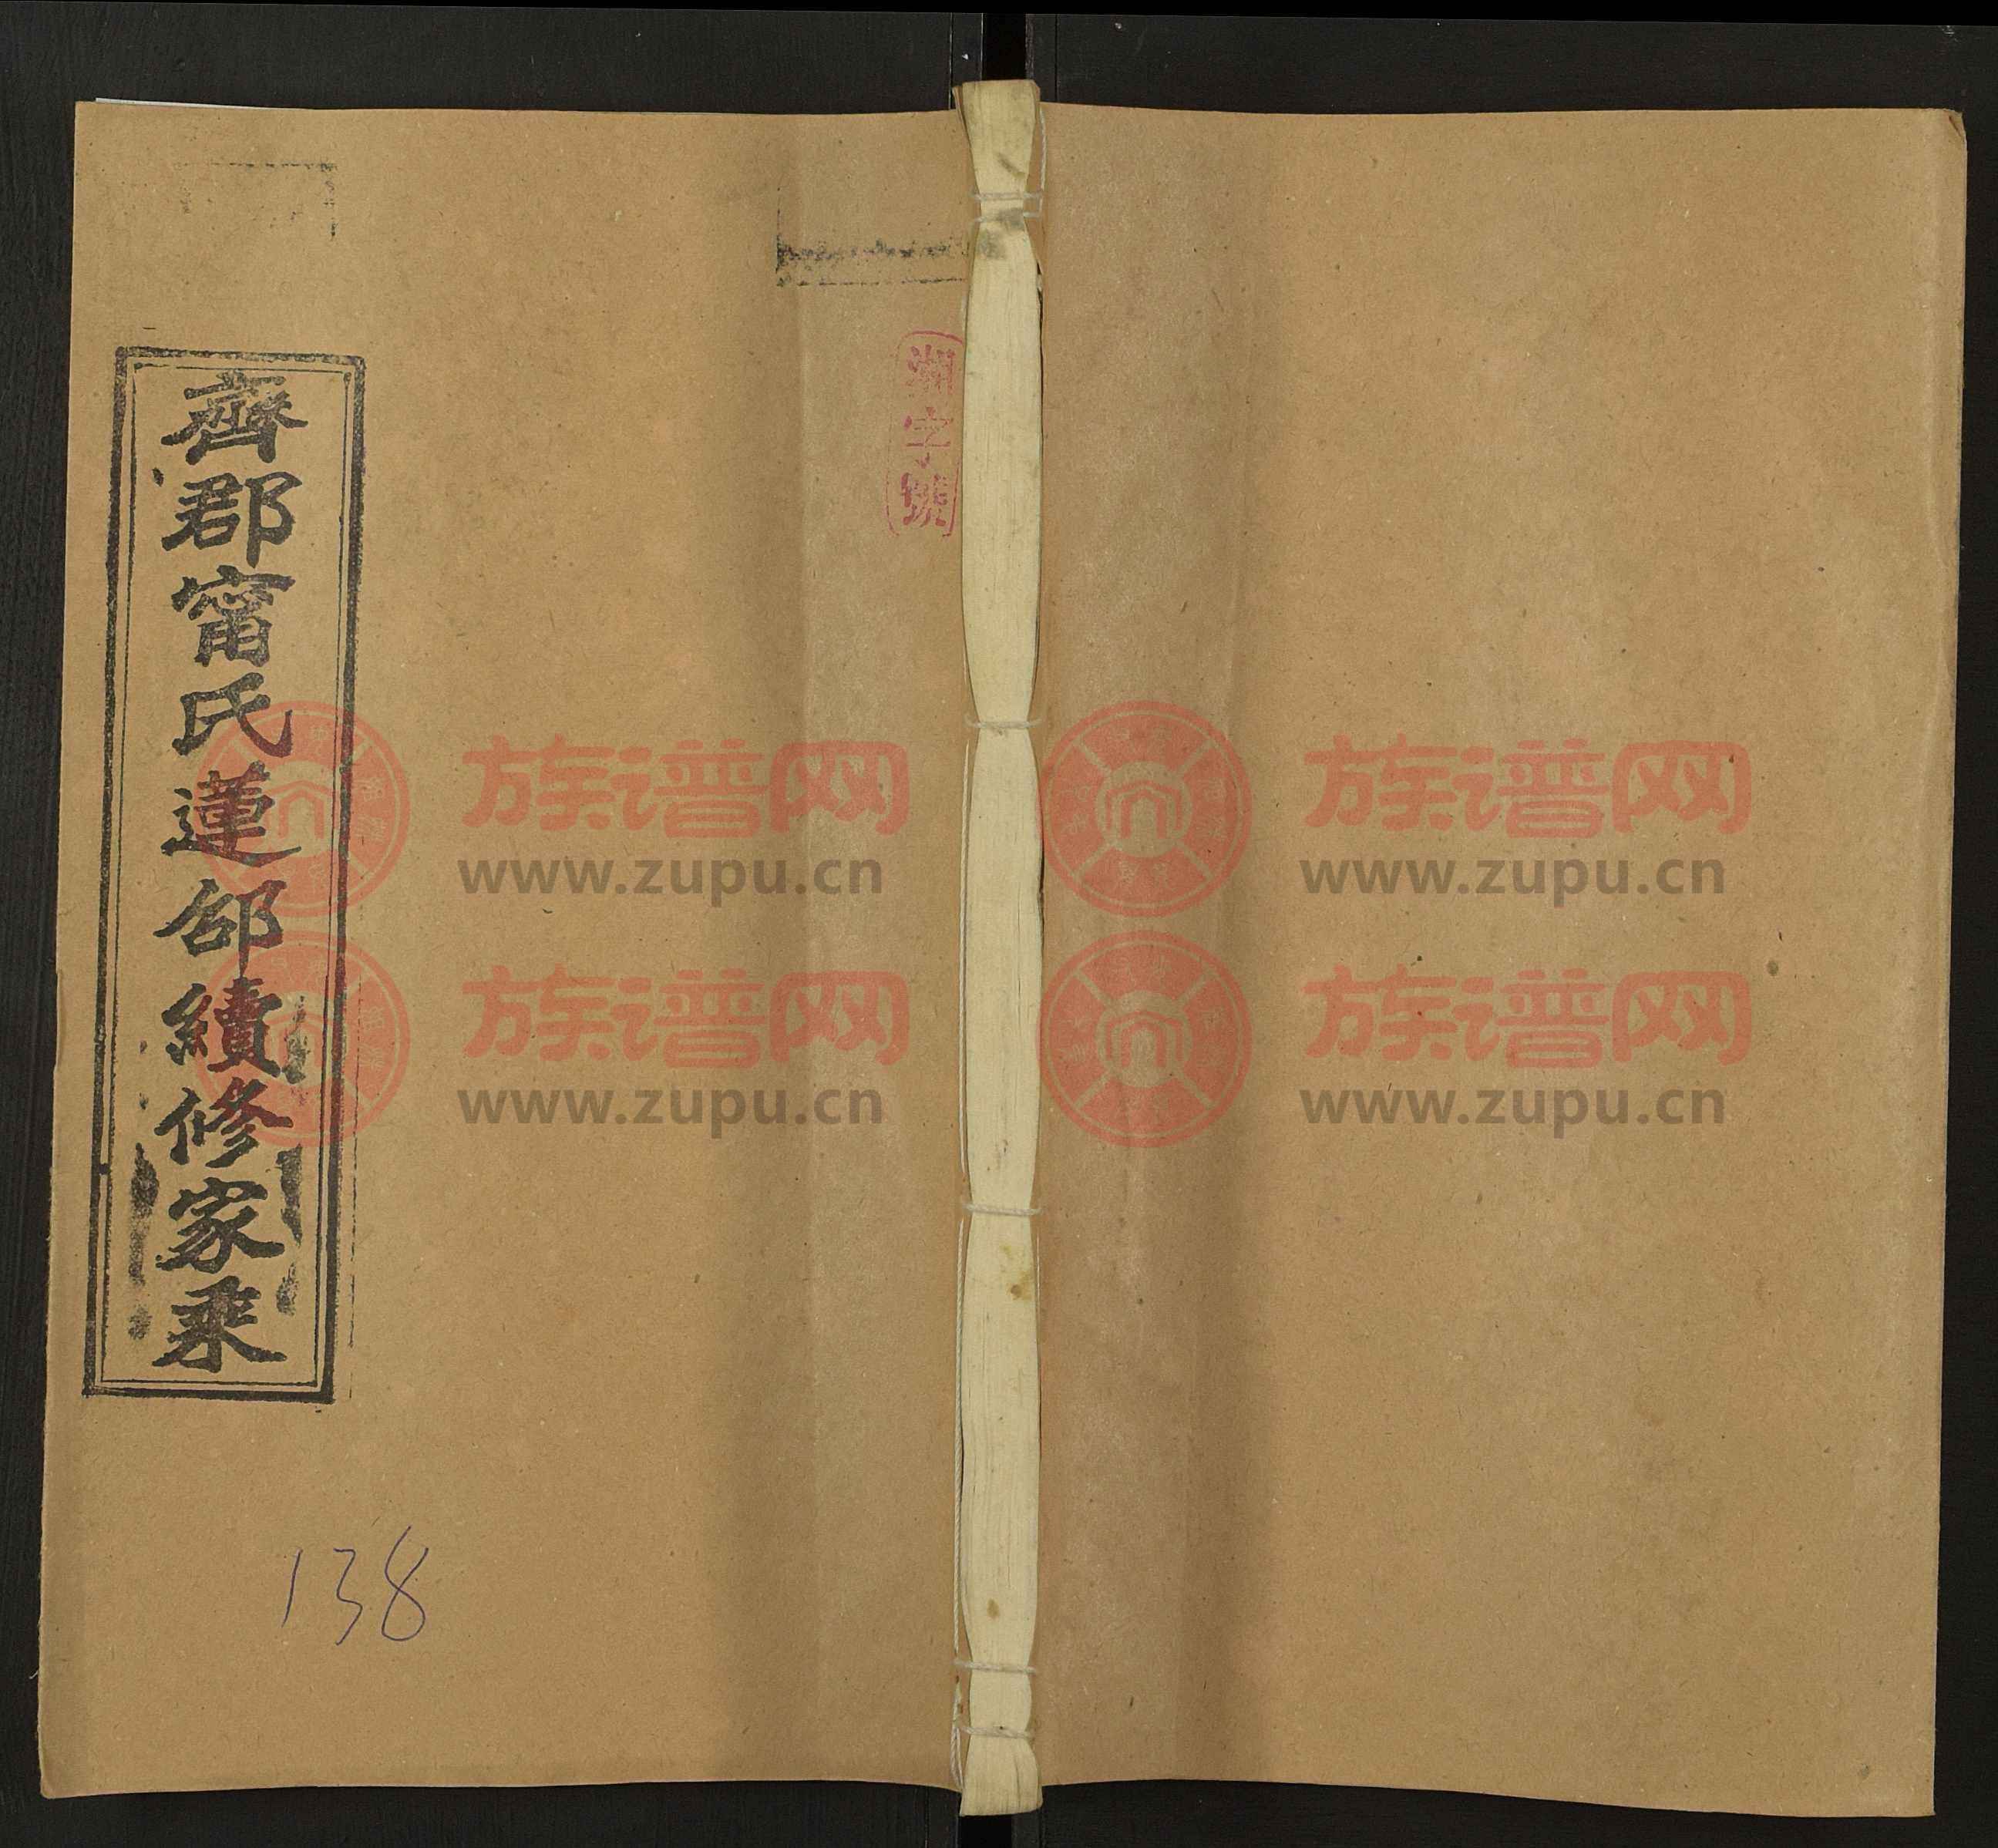 齊郡甯氏蓮邰續修家乘
字號
138
族谱网
www.zupu.cn
族谱网
www.zupu.cn
族谱网
www.zupu.cn
族谱网
www.zupu.cn